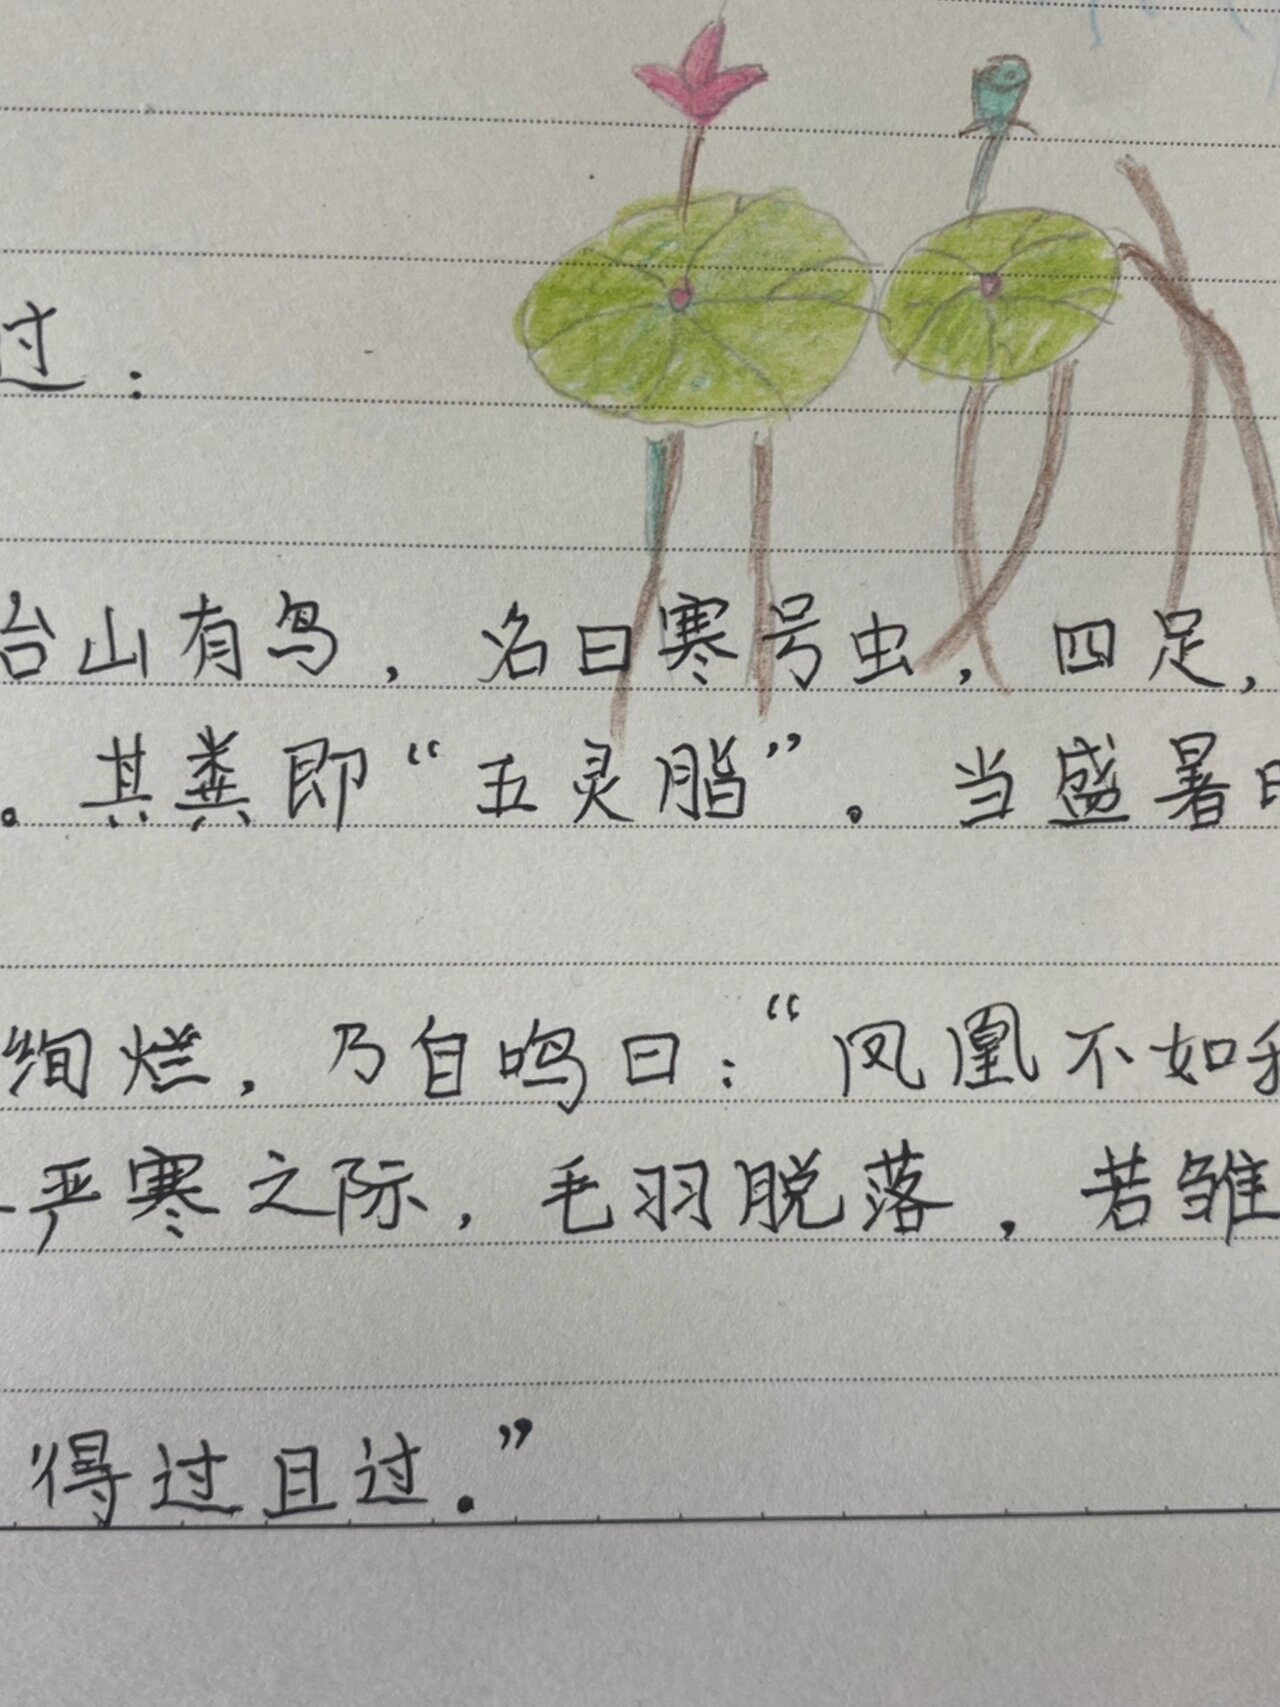 过：
台山有鸟，名曰寒号虫，四足，
。其粪即“五灵脂”。当盛暑
绚烂，乃自鸣曰：“凤凰不如
严寒之际，毛羽脱落，若雏
得过且过．”